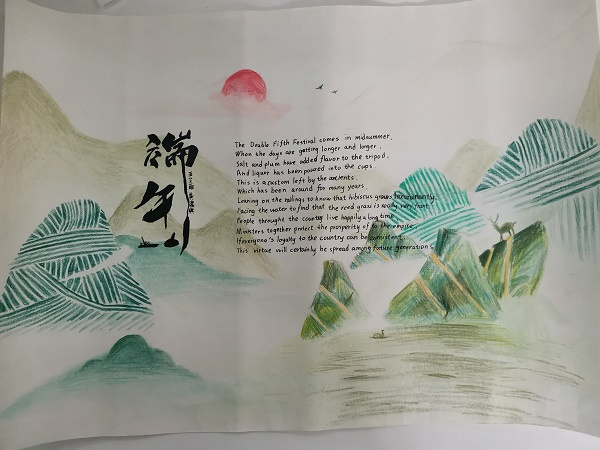 端午
The Double Fifth Festival comes in midsummer,
When the days are getting longer and longer.
Salt and plum have added flavor to the tripod,
And liquor has been poured into the cups.
This is a custom left by the ancients,
Which has been around for many years.
Leaning on the railings to know that hibiscus grows
Facing the water to find that the reed grass is really very
People throught the country live happily a long time,
Ministers together protect the prosperity of to the empire.
If everyone's legality to the country can be consistent,
This virtue will certainly be spread among future generations.